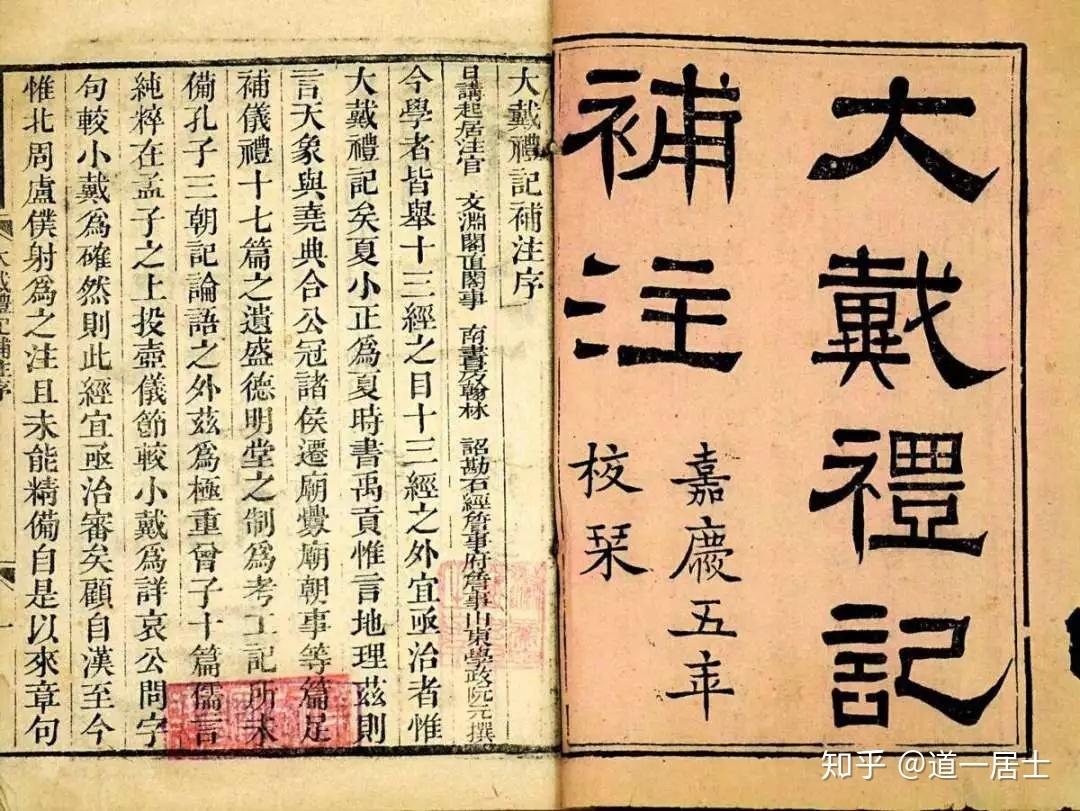 大戴禮記
補注
嘉慶五年
校栞
大戴禮記補注序
日講起居注官 文淵閣直閣事 南書房翰林 詔勘石經詹事府詹事山東學政阮元撰
今學者皆舉十三經之目十三經之外宜亟治者惟
大戴禮記矣夏小正為夏時書禹貢惟言地理茲則
言天象與堯典合公冠諸侯遷廟釁廟朝事等篇足
補儀禮十七篇之遺盛德明堂之制為考工記所未
備孔子三朝記論語之外茲為極重曾子十篇儒言
純粹在孟子之上投壺儀節較小戴為詳哀公問字
句較小戴為確然則此經宜亟治審矣顧自漢至今
惟北周盧僕射為之注且未能精備自是以來章句
大戴禮記補注序
一
知乎 @道一居士